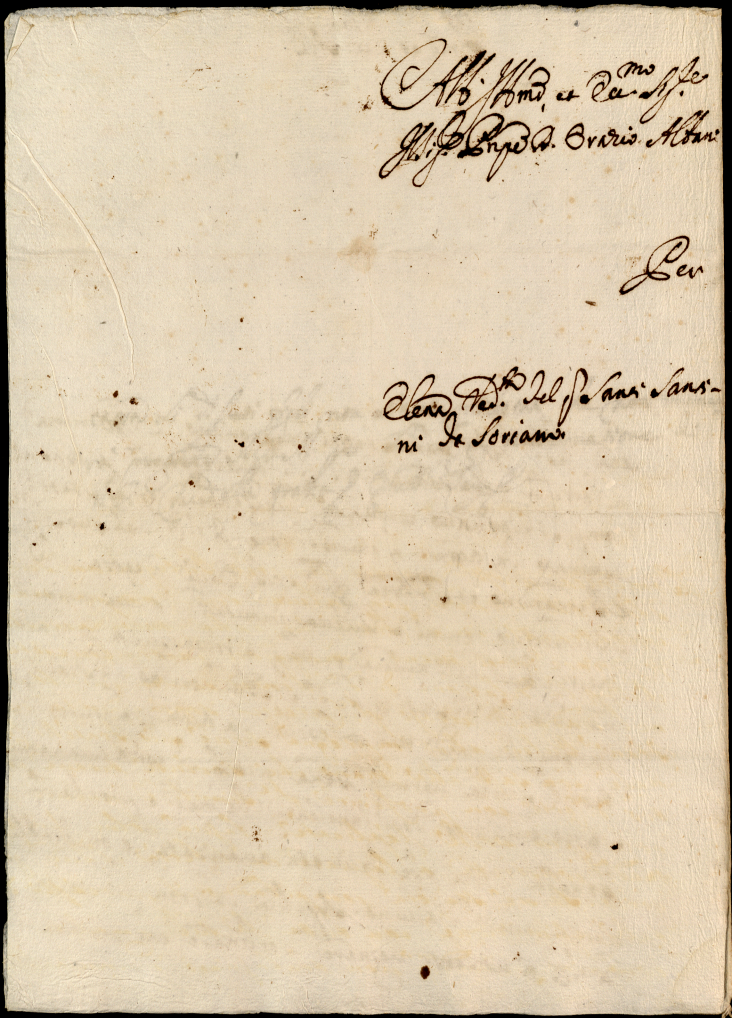 All' Ill.mo et Ecc.mo Sig.re
Il Sig. Prnpe D. Orazio Albani
Per
Elena Ved.a del q Santi Santi-
ni da Soriano